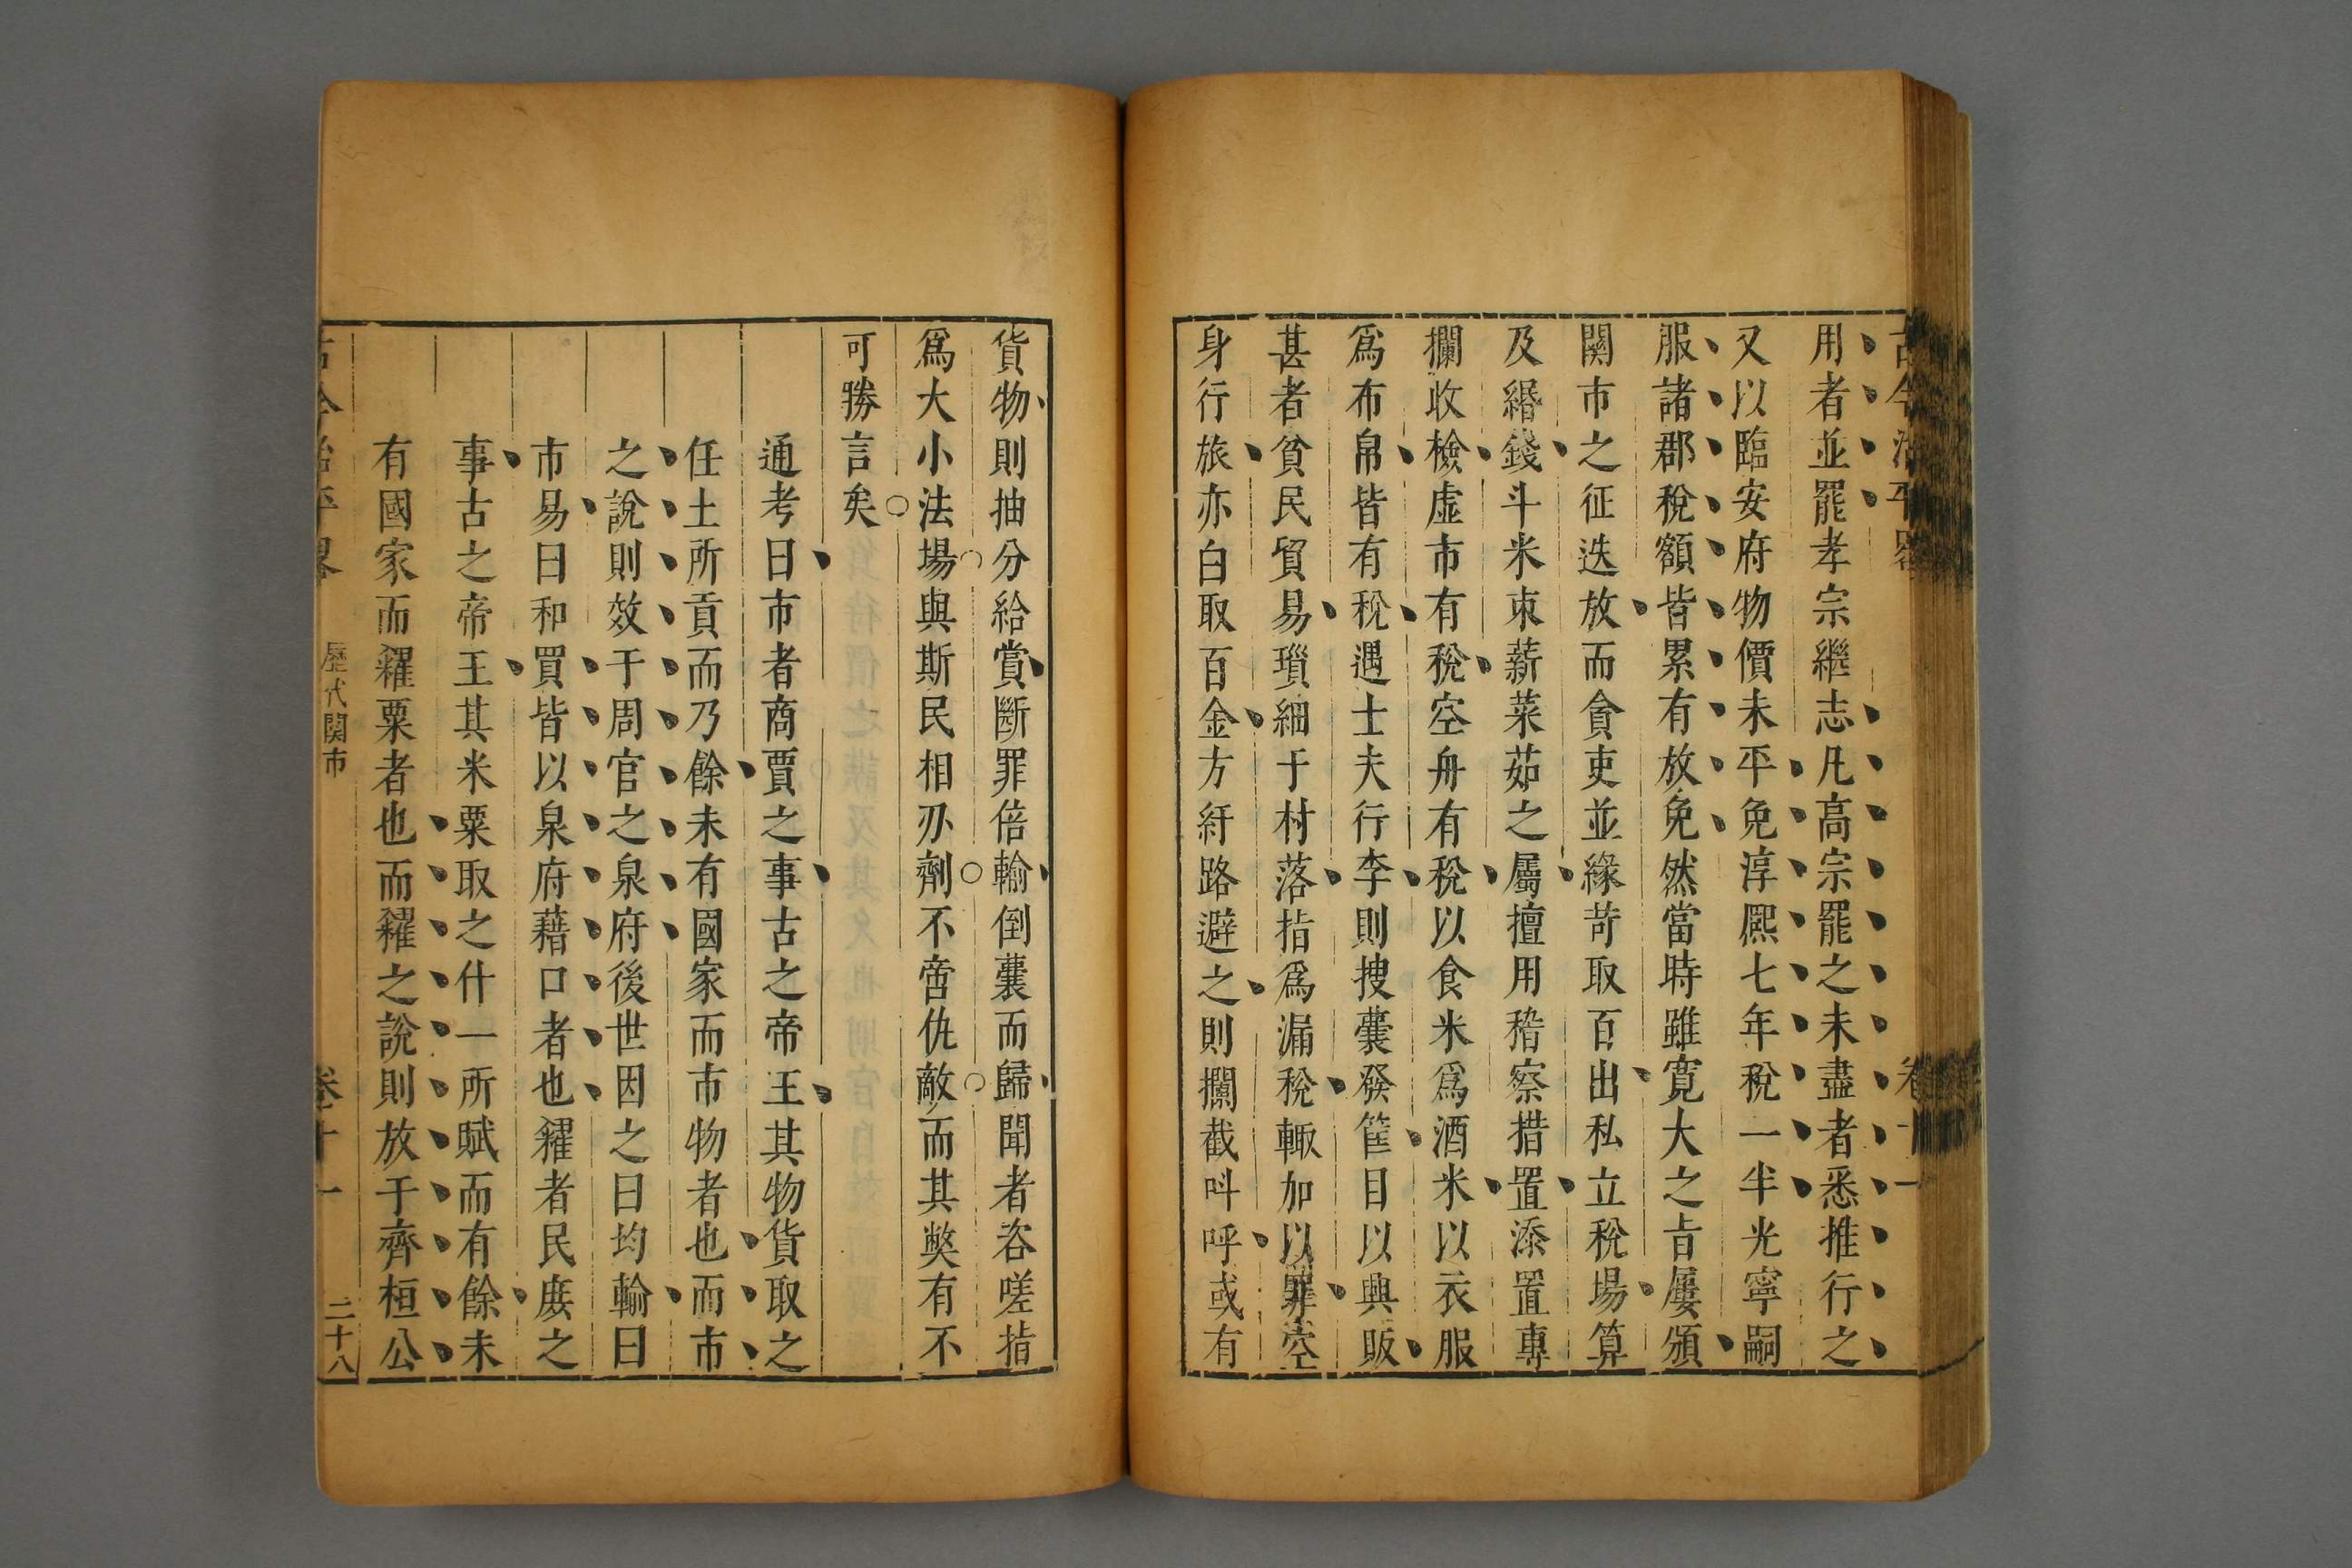 古今治平畧 卷十一
用者並罷孝宗繼志凡高宗罷之未盡者悉推行之
又以臨安府物價未平免淳熈七年稅一半光寧嗣
服諸郡稅額皆累有放免然當時雖寛大之旨屢頒
関市之征迭放而貪吏並緣苛取百出私立稅場算
及緡錢斗米束薪菜茹之屬擅用稽察措置添置專
攔收檢虛市有稅空舟有稅以食米爲酒米以衣服
爲布帛皆有稅遇士夫行李則搜囊發筐目以興販
甚者貧民貿易瑣細于村落指爲漏稅輙加以罪空
身行旅亦白取百金方紆路避之則攔截呌呼或有
貨物則抽分給賞斷罪倍輸倒囊而歸聞者咨嗟指
爲大小法場與斯民相刃劑不啻仇敵而其獘有不
可勝言矣
通考曰市者商賈之事古之帝王其物貨取之
任土所貢而乃餘未有國家而市物者也而市
之說則效于周官之泉府後世因之曰均輸曰
市易曰和買皆以泉府藉口者也糴者民庻之
事古之帝王其米粟取之什一所賦而有餘未
有國家而糴粟者也而糴之說則放于齊桓公
古今治平畧 歷代関市 卷十一 二十八